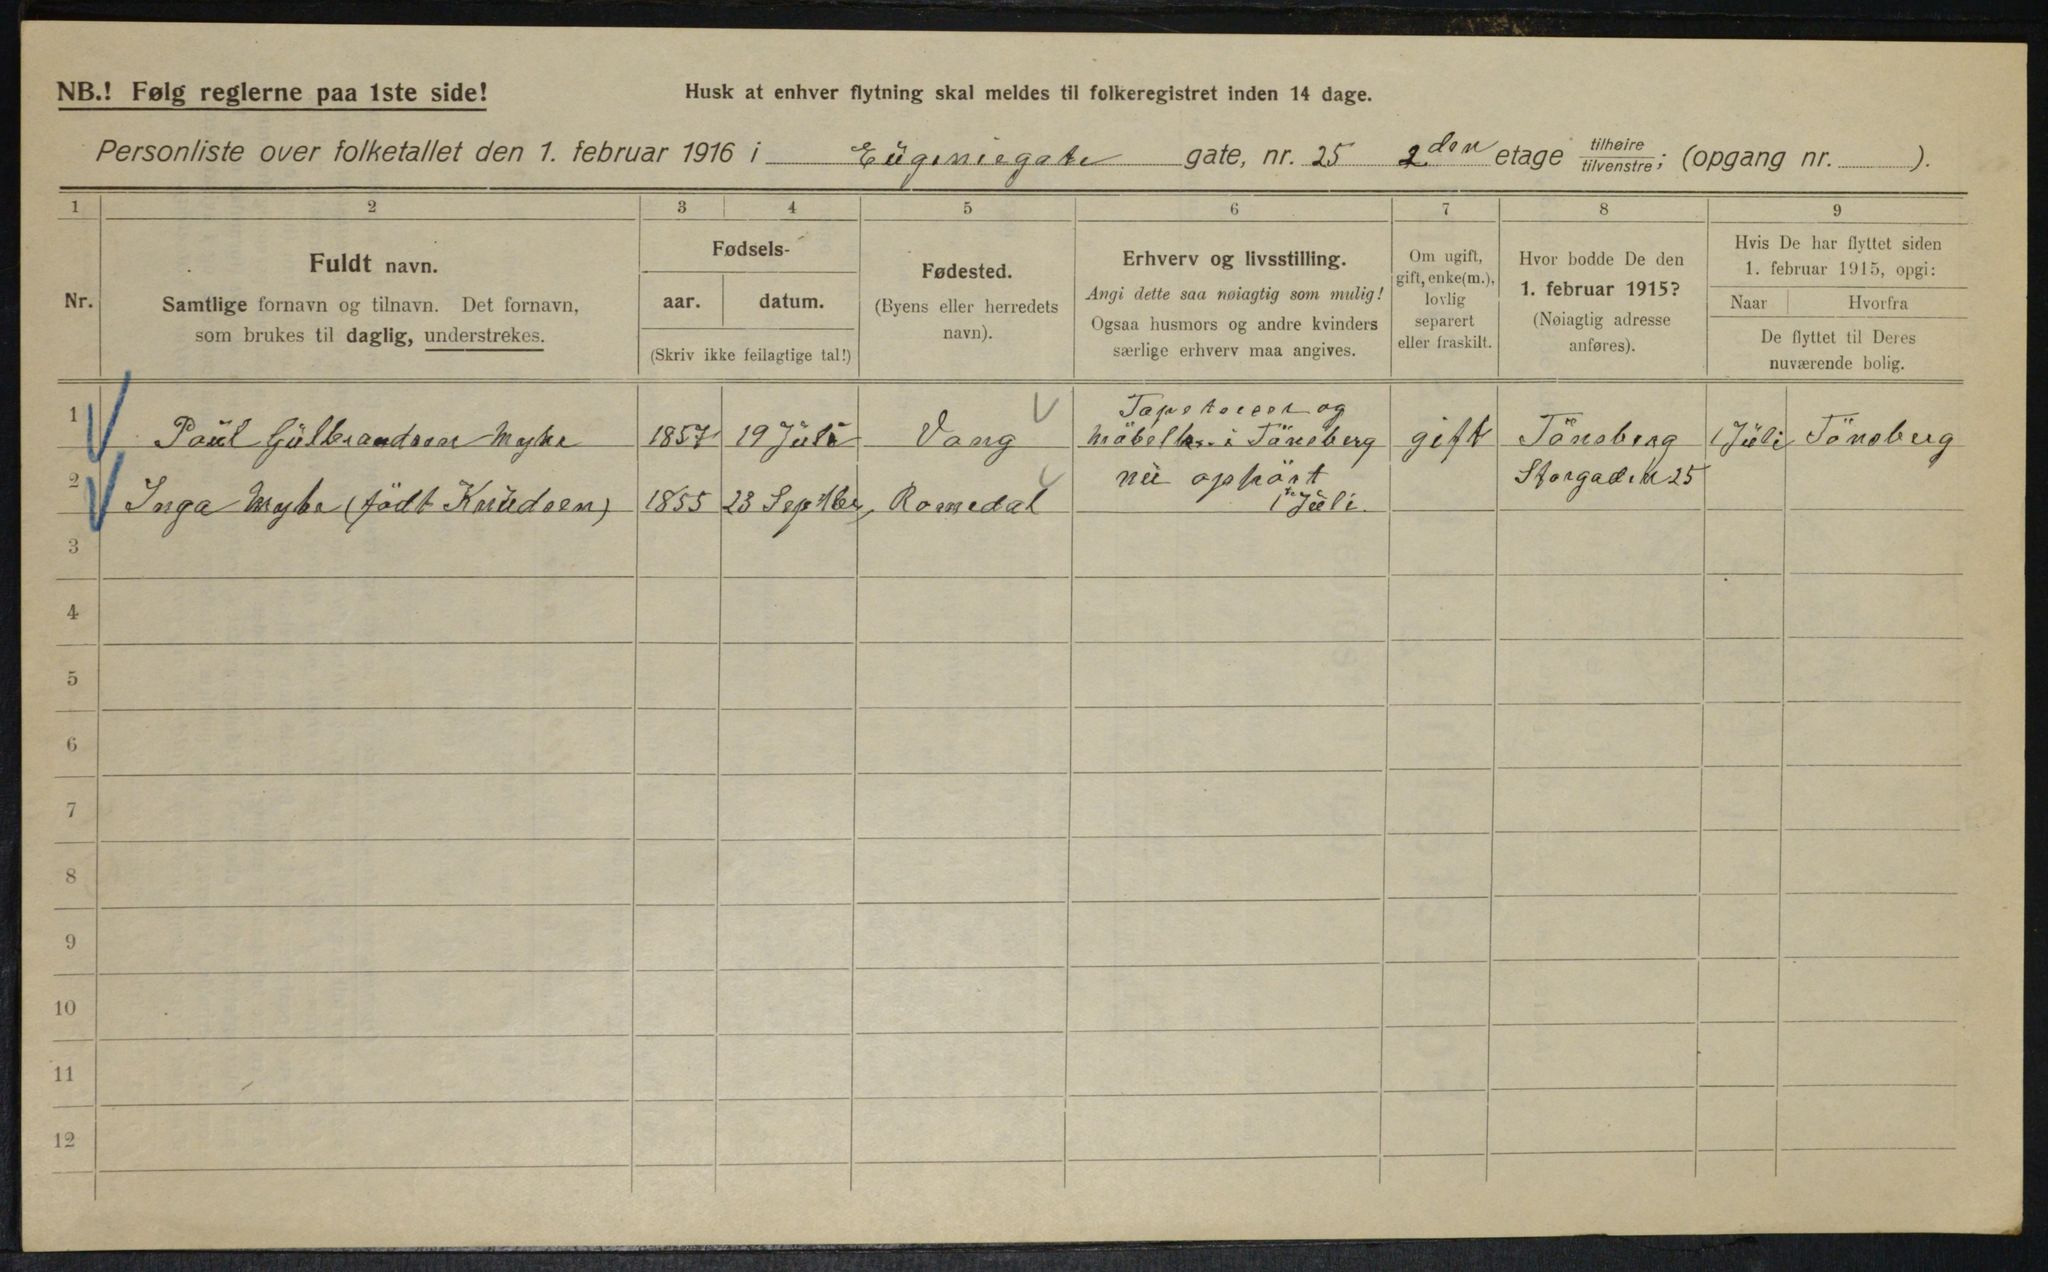 NB.! Følg reglerne paa 1ste side!
Husk at enhver flytning skal meldes til folkeregistret inden 14 dage.
Personliste over folketallet den 1. februar 1916 i Eügeniegate gate, nr. 25 2den etage tilhøire/tilvenstre; (opgang nr. ).
1 2 3 4 5 6 7 8 9
Nr.
Fuldt navn.
Samtlige fornavn og tilnavn. Det fornavn,
som brukes til daglig, understrekes.
Fødsels-
aar. datum.
(Skriv ikke feilagtige tal!)
Fødested.
(Byens eller herredets
navn).
Erhverv og livsstilling.
Angi dette saa nøiagtig som mulig!
Ogsaa husmors og andre kvinders
særlige erhverv maa angives.
Om ugift,
gift, enke(m.),
lovlig
separert
eller fraskilt.
Hvor bodde De den
1. februar 1915?
(Nøiagtig adresse
anføres).
Hvis De har flyttet siden
1. februar 1915, opgi:
Naar Hvorfra
De flyttet til Deres
nuværende bolig.
1 Paül Gülbrandsen Myhre 1857 19 Jüli Vang Tapetserer og
Möbelh. i Tönsberg gift Tönsberg 1 Jüli Tönsberg
2 Inga Myhre (födt Knüdsen) 1855 23 Septber Romedal nü ophört
1ste Jüli. Storgaden 25
3
4
5
6
7
8
9
10
11
12